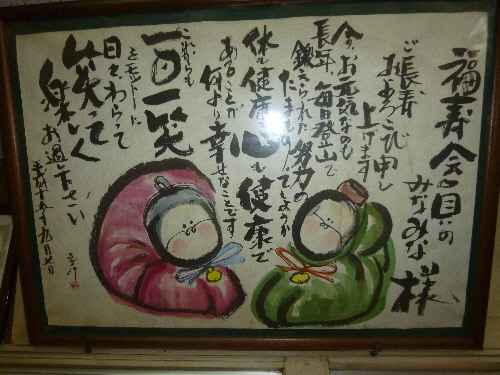 福寿会会員の
みなみな様
ご長寿
およろこび申し
上げます
今、お元気なのも
長年、毎日登山で
鍛えられた努力の
たまものでしょうか
体も健康 心も健康で
あることが
何より幸せなことです
これからも
一日一笑
をモットーに
日々わらって
笑っていく
楽しく
お過し下さい